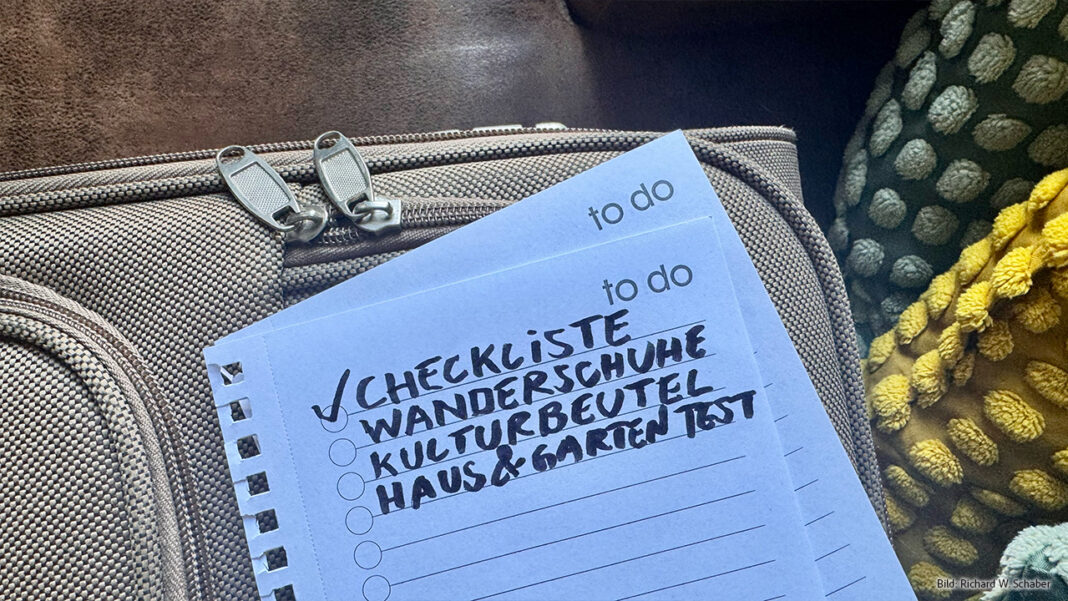 to do
to do
✓ CHECKLISTE
WANDERSCHUHE
KULTURBEUTEL
HAUS & GARTEN TEST
Bild: Richard W. Schaber